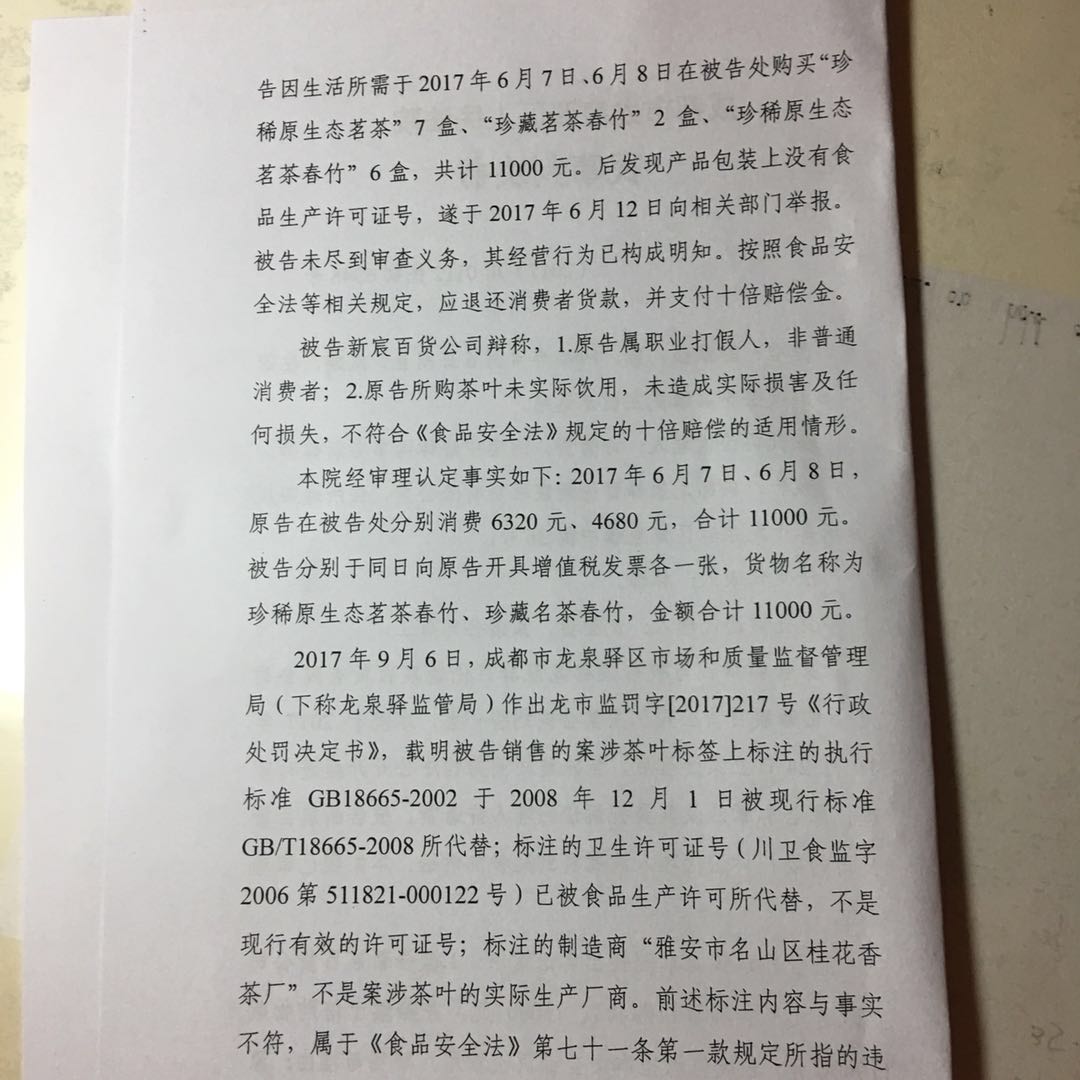 告因生活所需于2017年6月7日、6月8日在被告处购买“珍
稀原生态茗茶”7盒、“珍藏茗茶春竹”2盒、“珍稀原生态
茗茶春竹”6盒，共计11000元。后发现产品包装上没有食
品生产许可证号，遂于2017年6月12日向相关部门举报。
被告未尽到审查义务，其经营行为已构成明知。按照食品安
全法等相关规定，应退还消费者货款，并支付十倍赔偿金。
被告新宸百货公司辩称，1.原告属职业打假人，非普通
消费者；2.原告所购茶叶未实际饮用，未造成实际损害及任
何损失，不符合《食品安全法》规定的十倍赔偿的适用情形。
本院经审理认定事实如下：2017年6月7日、6月8日，
原告在被告处分别消费6320元、4680元，合计11000元。
被告分别于同日向原告开具增值税发票各一张，货物名称为
珍稀原生态茗茶春竹、珍藏名茶春竹，金额合计11000元。
2017年9月6日，成都市龙泉驿区市场和质量监督管理
局（下称龙泉驿监管局）作出龙市监罚字[2017]217号《行政
处罚决定书》，载明被告销售的案涉茶叶标签上标注的执行
标准 GB18665-2002 于 2008 年 12 月 1 日被现行标准
GB/T18665-2008所代替；标注的卫生许可证号（川卫食监字
2006第511821-000122号）已被食品生产许可所代替，不是
现行有效的许可证号；标注的制造商“雅安市名山区桂花香
茶厂”不是案涉茶叶的实际生产厂商。前述标注内容与事实
不符，属于《食品安全法》第七十一条第一款规定所指的违